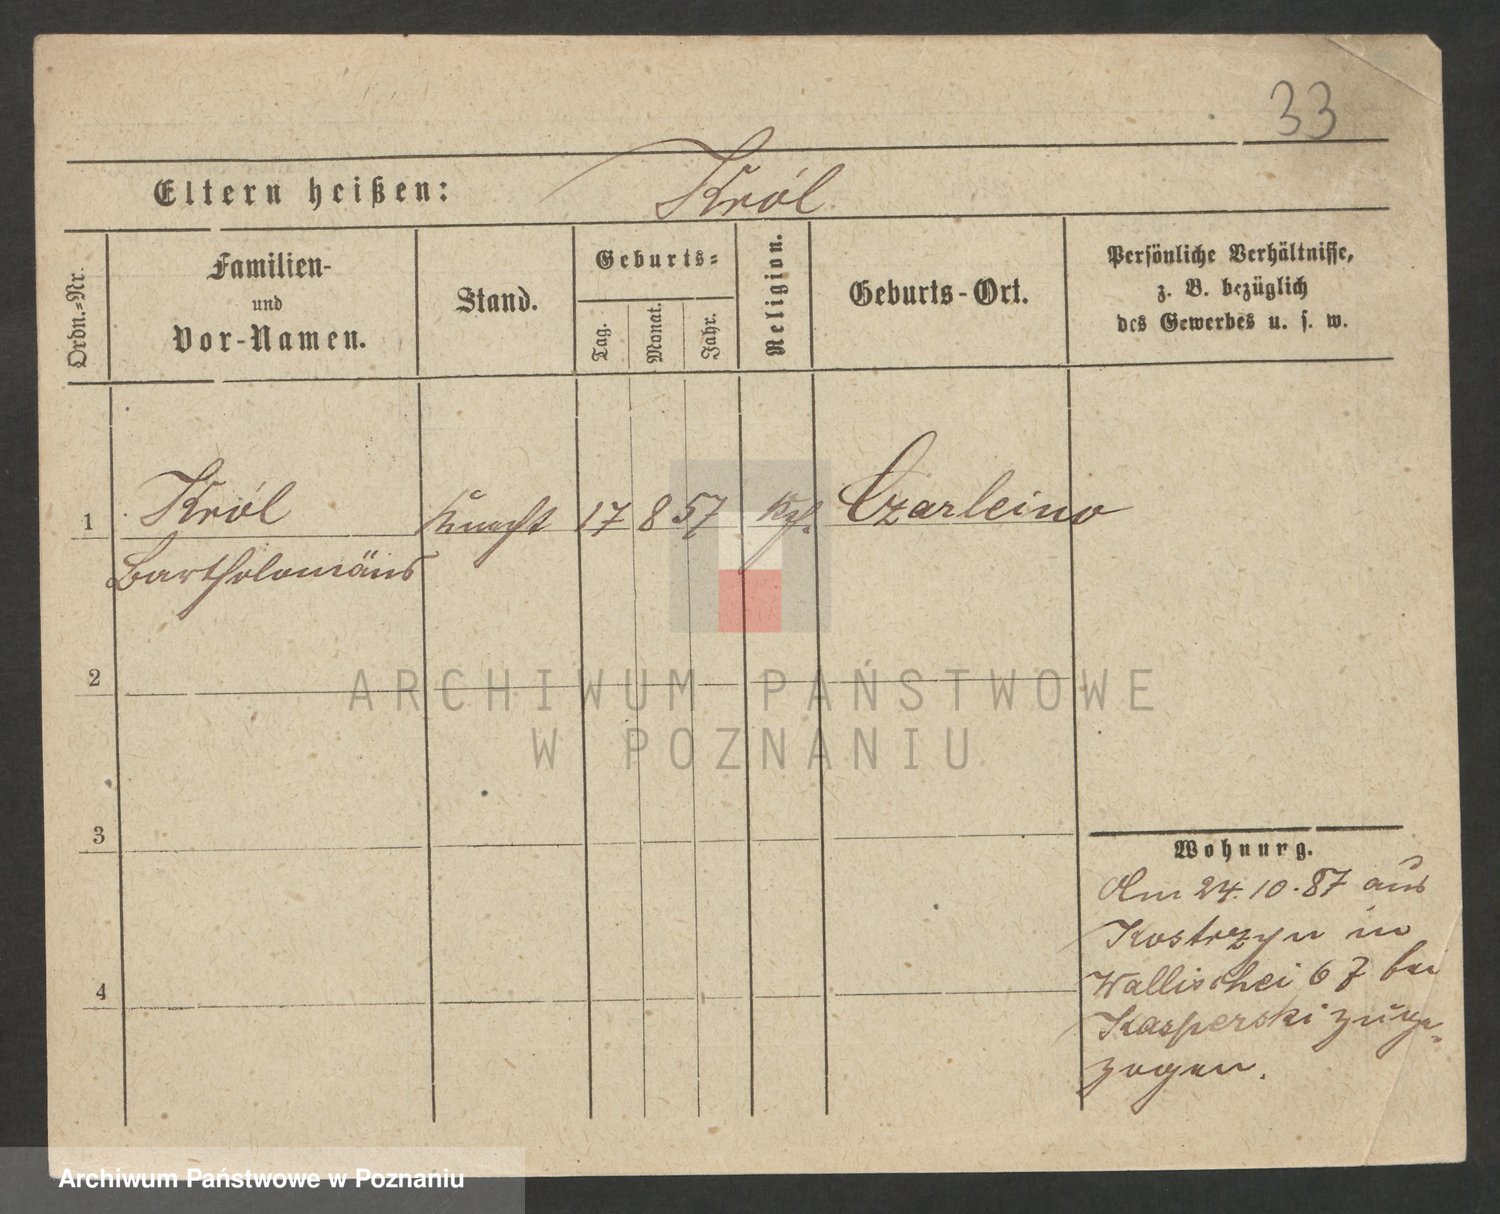 33
Eltern heißen: Król
Ordn.-Nr.
Familien-
und
Vor-Namen.
Stand.
Geburts-
Tag.
Monat.
Jahr.
Religion.
Geburts-Ort.
Persönliche Verhältnisse,
z. B. bezüglich
des Gewerbes u. s. w.
1 Król Knecht 17 8 57 Kath. Czarleino
Bartholomäus
2
ARCHIWUM PAŃSTWOWE
W POZNANIU
3
Wohnurg.
Am 24.10.87 aus
Kostrzyn in
4
Wallischei 67 bei
Kasperski zuge-
zogen.
Archiwum Państwowe w Poznaniu